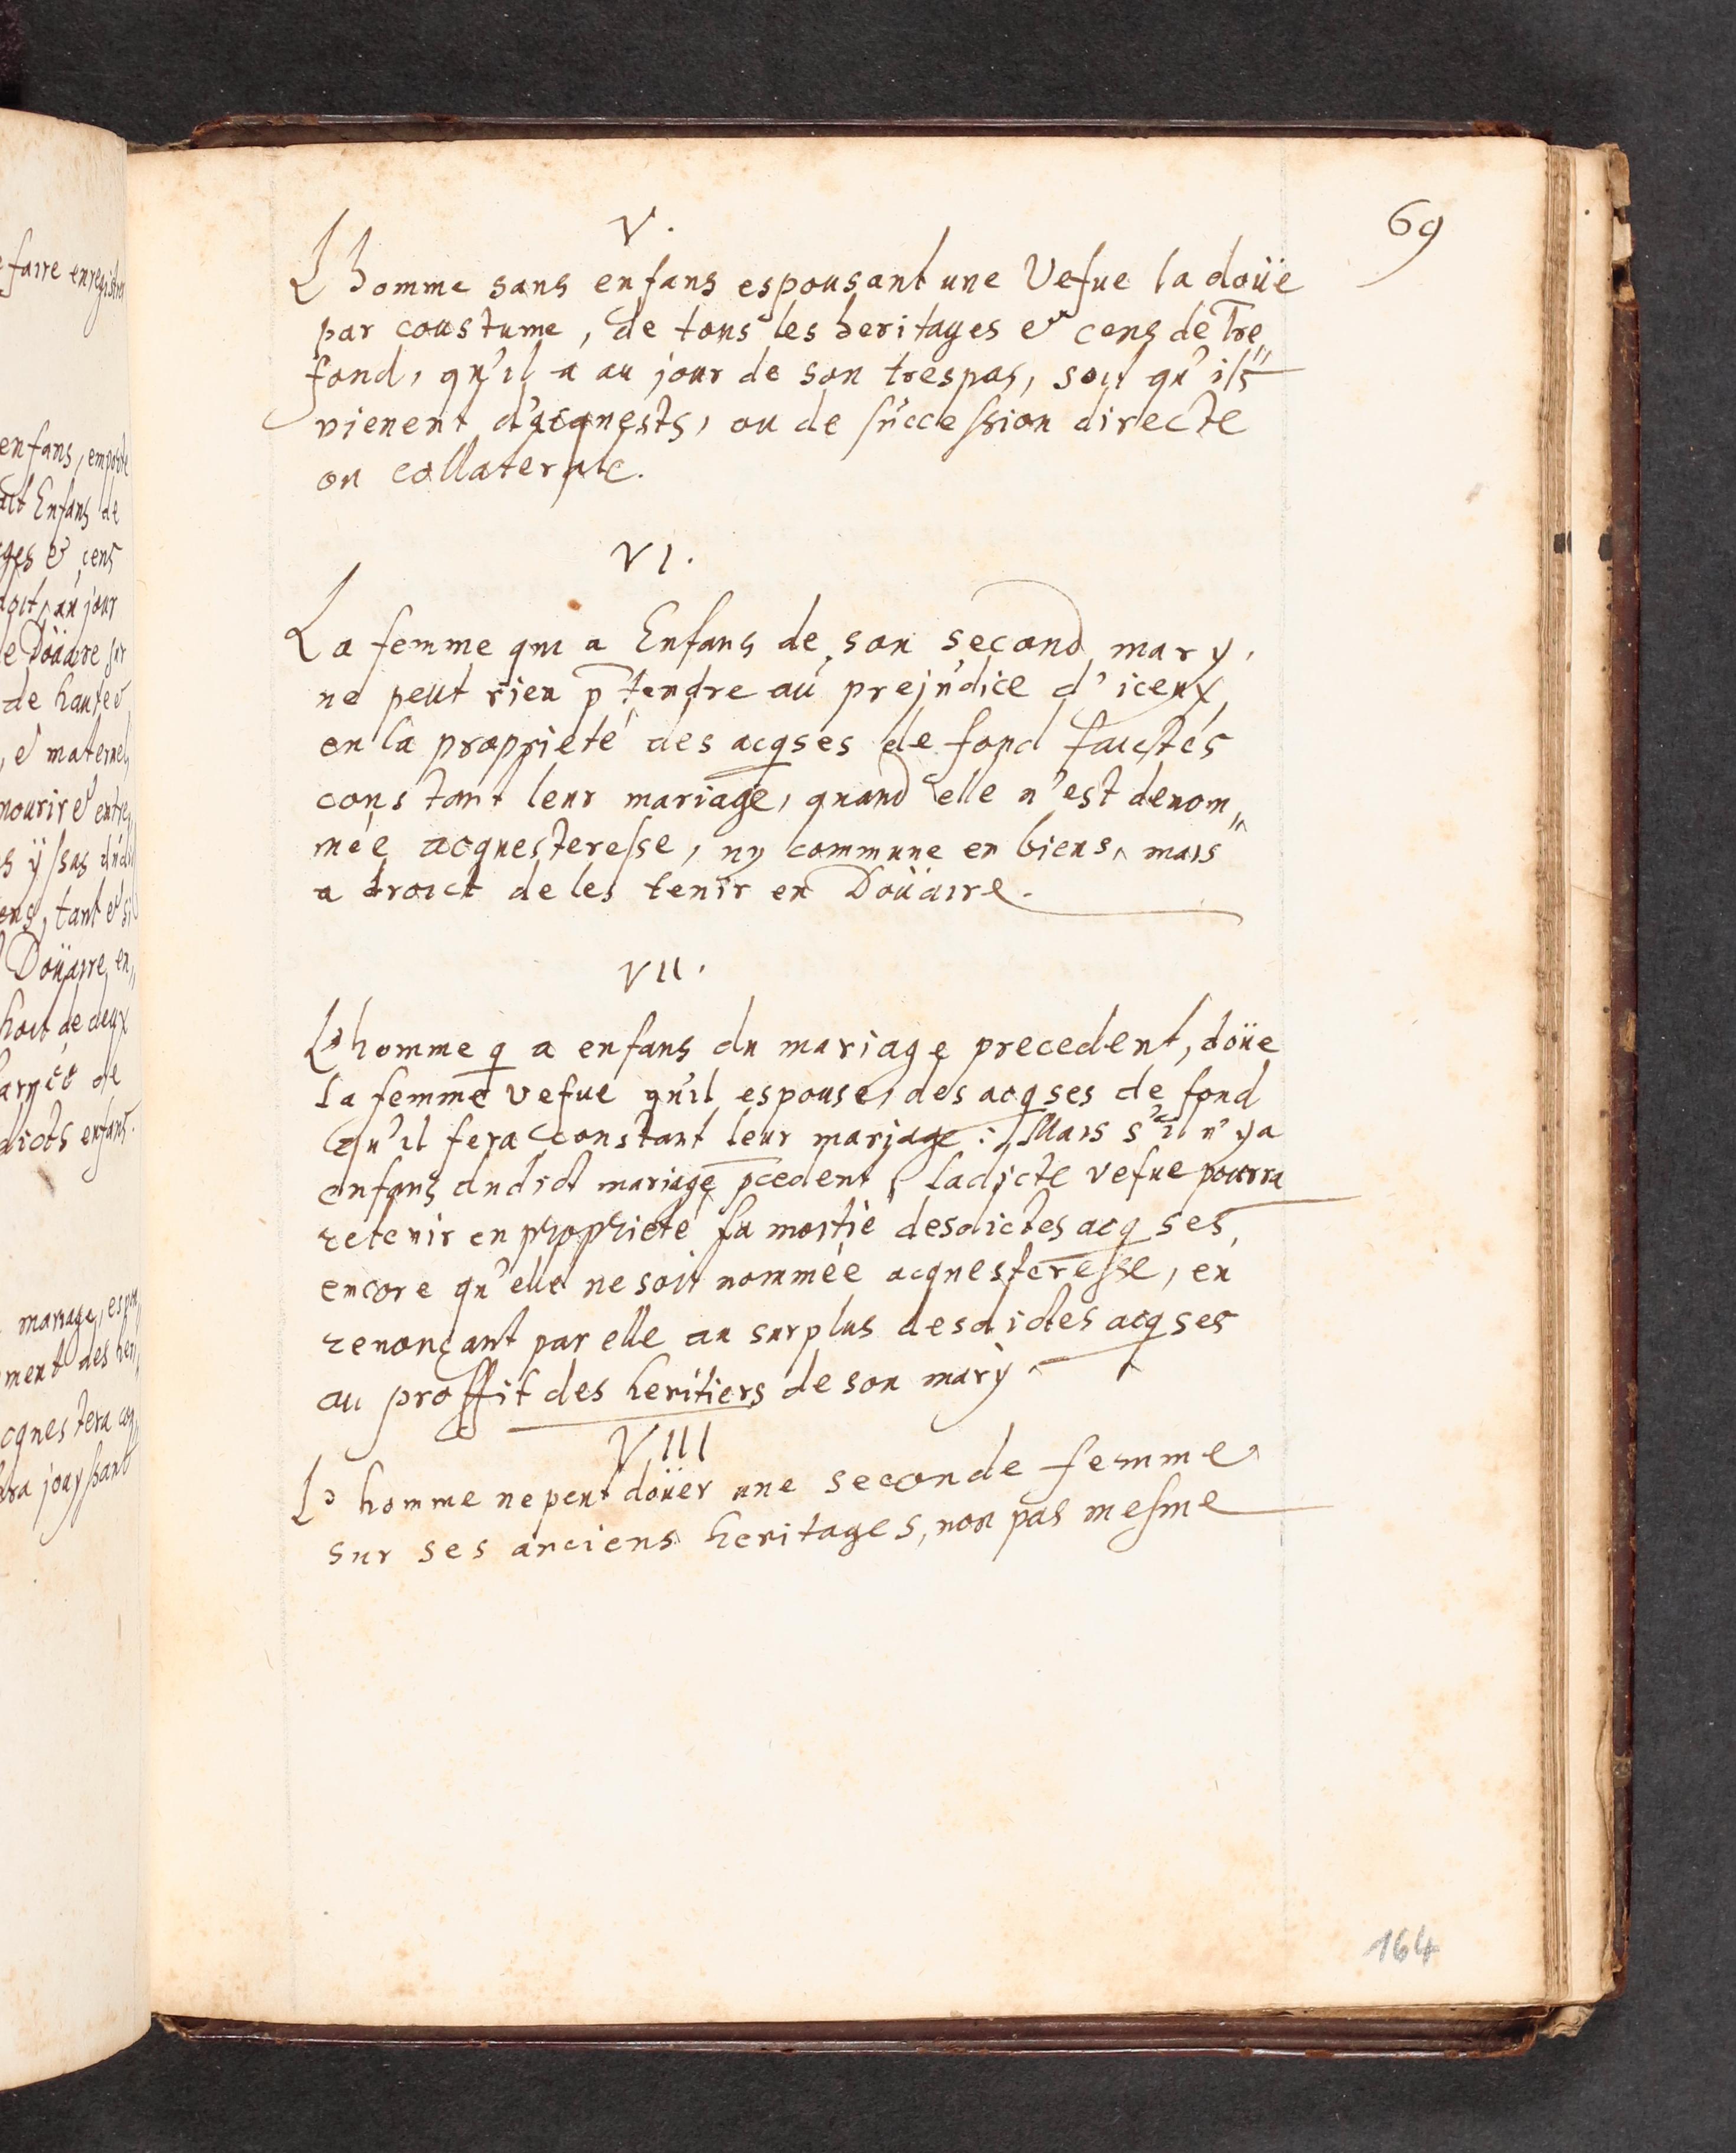 e faire enregistrer
enfans, emporte
Enfans de
ges & cens
au jour
e Doüaire sur
de hante &
, & maternel
nourir & entre
ens, tant & si
Doüaire, en„
hoit de deux
de
dicts enfans.
mariage, espou
ment des heri„
cquestera
ra jouyssant
69
V.
L'homme sans enfans espousant une Vefue la doüe
par coustume, de tous les heritages & cens de Tre„
fond, qu'il a au jour de son trespas, soit qu'ils
vienent d'acquests, ou de succession directe
ou collaterale.
VI.
La femme qui a Enfans de son second mary,
ne peut rien p̄tendre au prejudice d'iceux,
en la proprieté des acq̄ses de fond faictes
constant leur mariage, quand elle n'est denom„
mée acquesteresse, ny commune en biens, mais
a droict de les tenir en Doüaire.
VII.
L'homme q̄ a enfans du mariage precedent, doüe
la femme vefue qu'il espouse, des acq̄ses de fond
qu'il fera constant leur mariage: Mais s'il n'y a
enfans dudict mariage p̄cedent, ladicte vefue pourra
retenir en proprieté la moitié desdictes acq̄ses,
encore qu'elle ne soit nommée acquesteresse, en
renonçant par elle au surplus desdictes acq̄ses
au proffit des heritiers de son mary.
VIII
L'homme ne peut doüer une seconde femme
sur ses anciens heritages, non pas mesme
164